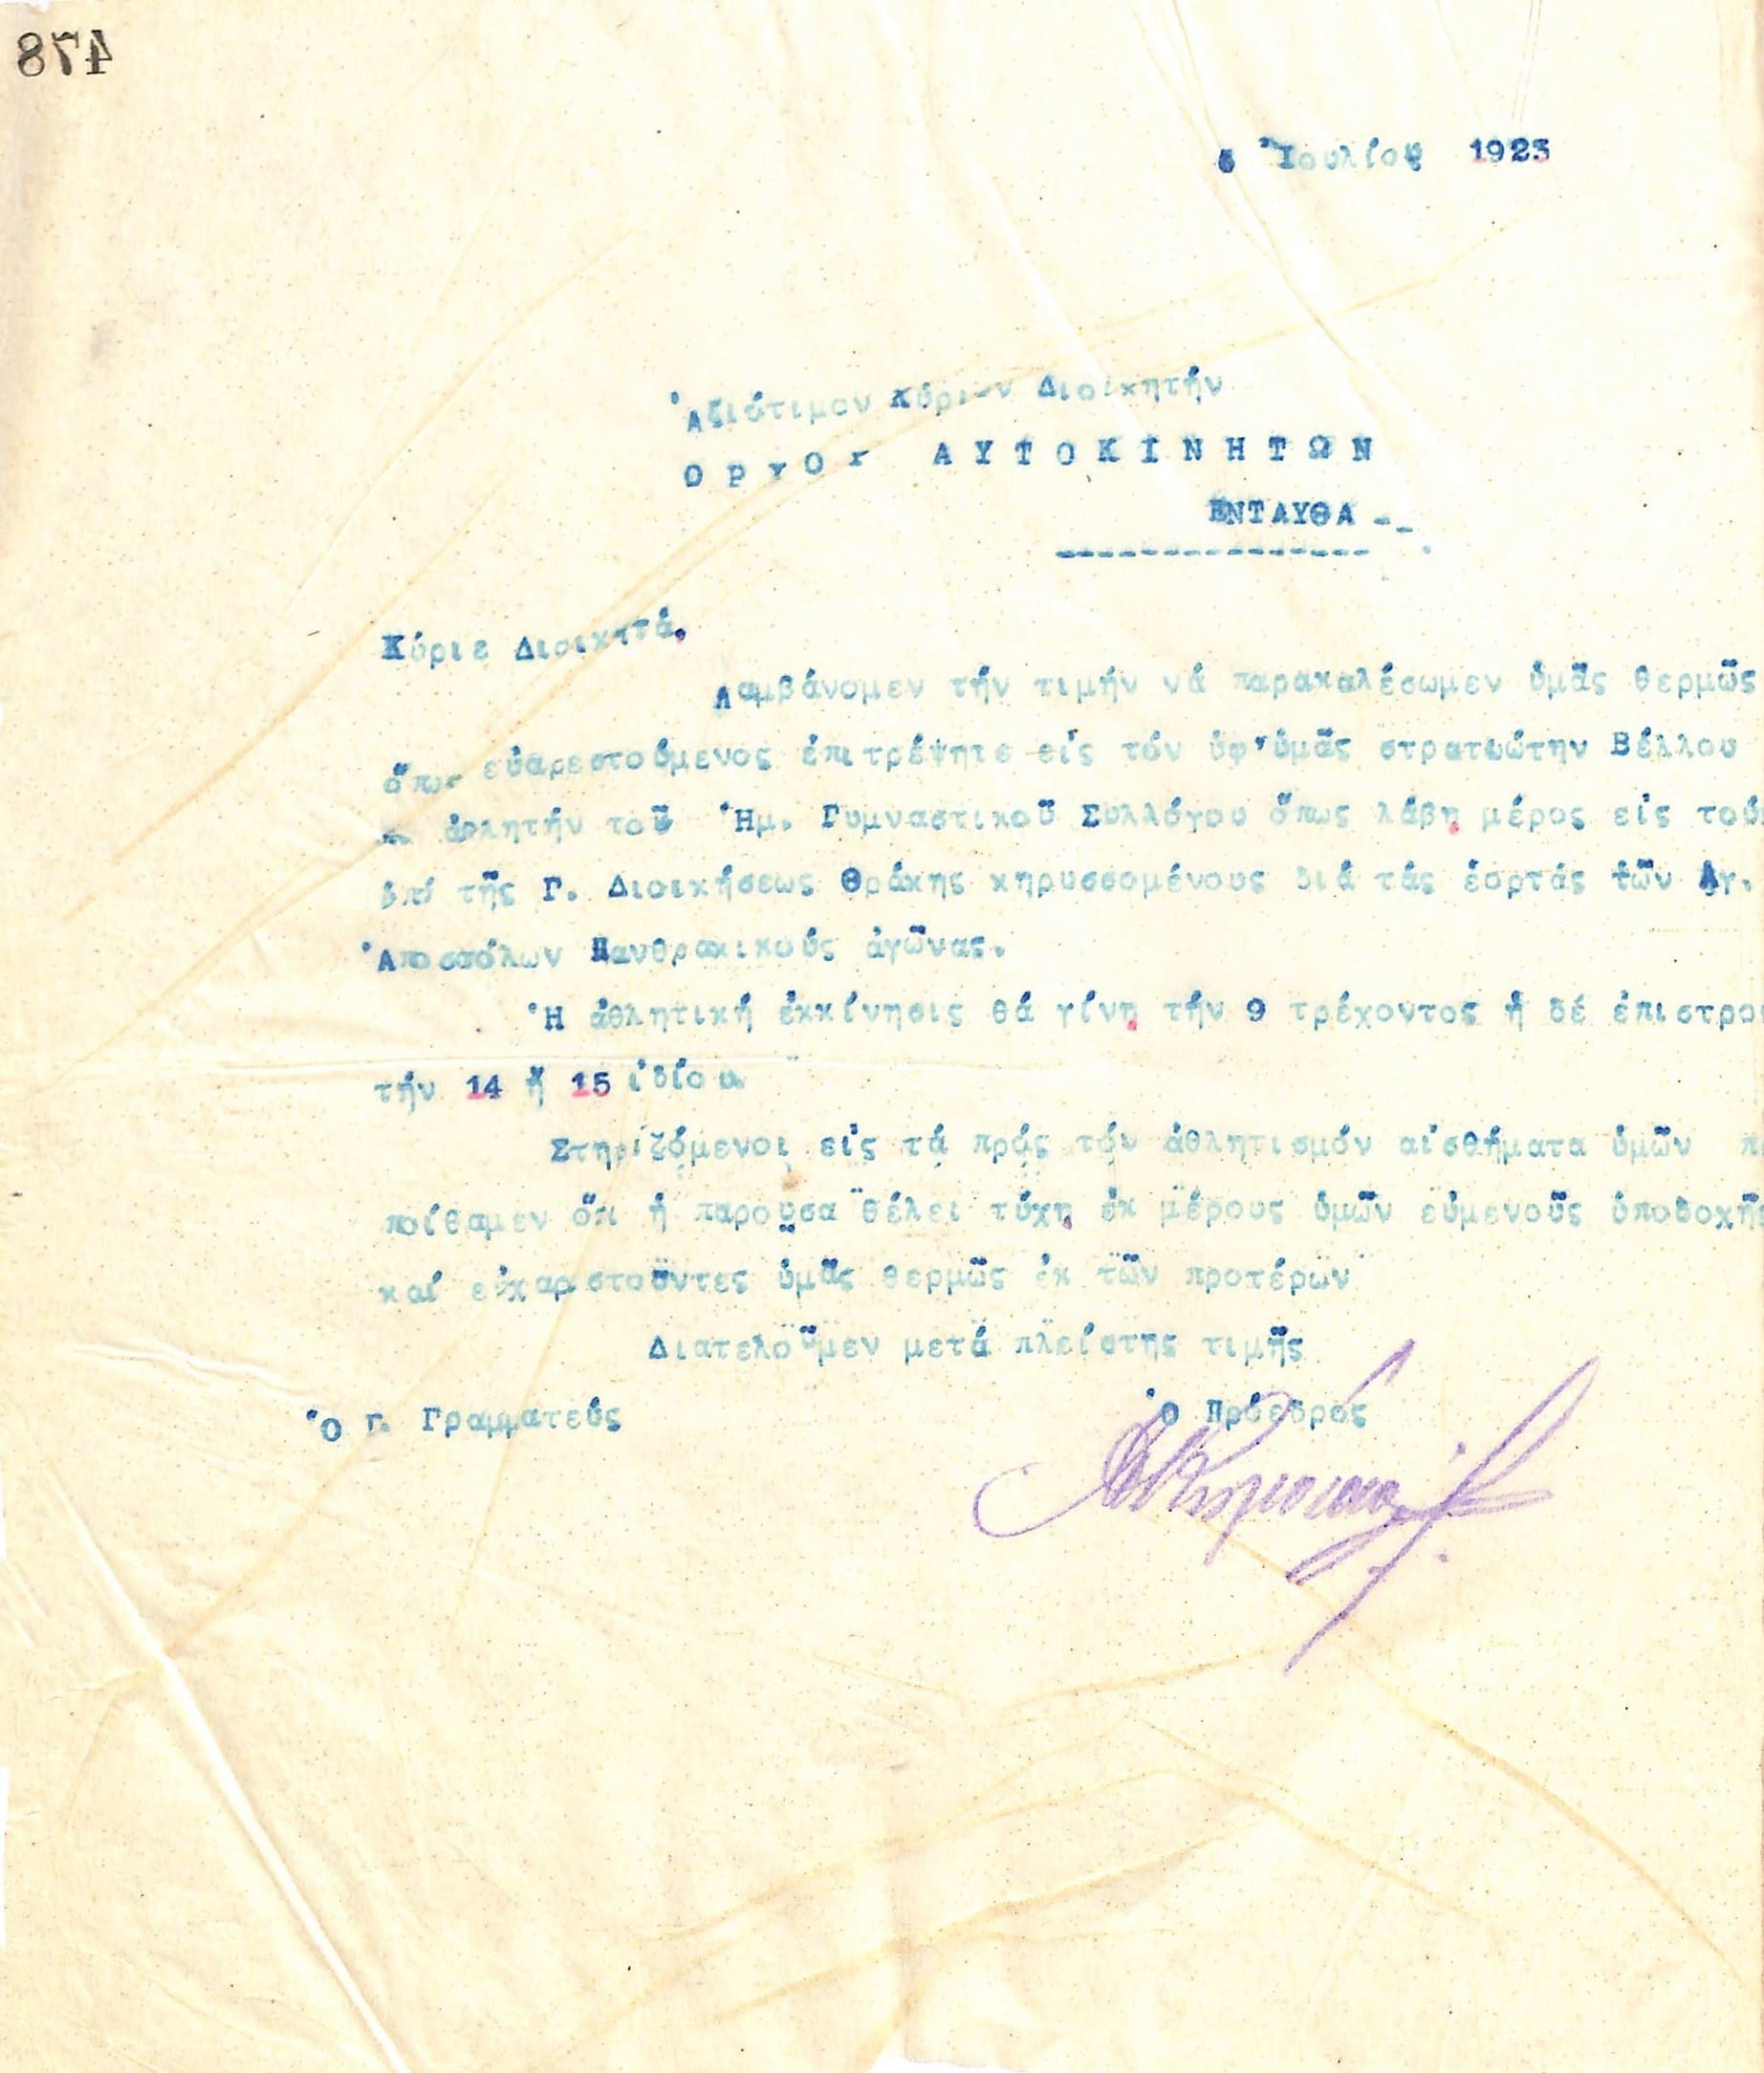 478
6 Ἰουλίου 1923
Ἀξιότιμον Κύριον Διοικητήν
ΑΥΤΟΚΙΝΗΤΩΝ
ΕΝΤΑΥΘΑ --
---------------.
Κύριε Διοικητά,
Λαμβάνομεν τήν τιμήν νά παρακαλέσωμεν ὑμᾶς θερμῶς
ὅπως εὐαρεστούμενος ἐπιτρέψητε εἰς τόν ὑφ'ὑμᾶς στρατιώτην Βέλλου
ἀθλητήν τοῦ Ἡμ. Γυμναστικοῦ Συλλόγου ὅπως λάβῃ μέρος εἰς τούς
ὑπό τῆς Γ. Διοικήσεως Θράκης κηρυσσομένους διά τάς ἑορτάς τῶν Ἁγ.
Ἀποστόλων Πανθρακικούς ἀγῶνας.
Ἡ ἀθλητική ἐκκίνησις θά γίνῃ τήν 9 τρέχοντος ἡ δέ ἐπιστρο
τήν 14 ἤ 15 ἰδίου
Στηριζόμενοι εἰς τά πρός τόν ἀθλητισμόν αἰσθήματα ὑμῶν π
ποίθαμεν ὅτι ἡ παροῦσα θέλει τύχῃ ἐκ μέρους ὑμῶν εὐμενοῦς ὑποδοχῆς
καί εὐχαριστοῦντες ὑμᾶς θερμῶς ἐκ τῶν προτέρων
Διατελοῦμεν μετά πλείστης τιμῆς
Ὁ Γ. Γραμματεύς Ὁ Πρόεδρος